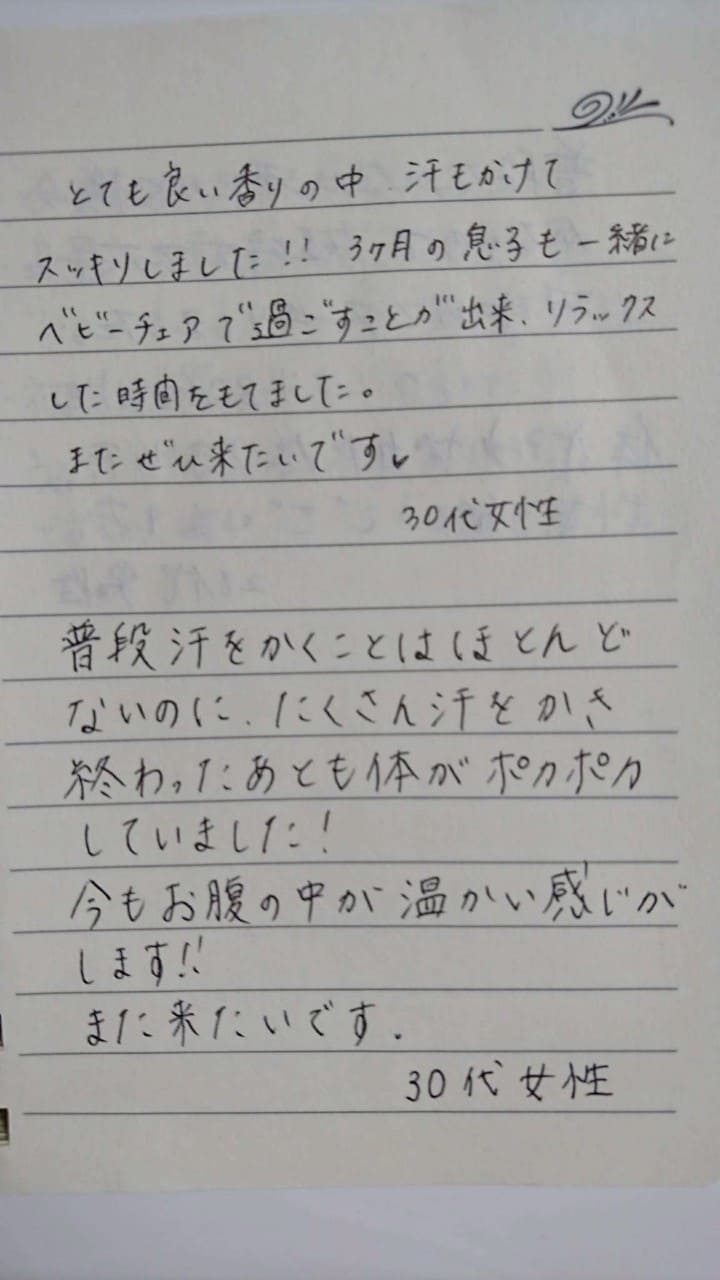 とても良い香りの中、汗もかけて
スッキリしました!! 3ヶ月の息子も一緒に
ベビーチェアで過ごすことが出来、リラックス
した時間をもてました。
またぜひ来たいです
30代女性
普段汗をかくことはほとんど
ないのに、たくさん汗をかき
終わったあとも体がポカポカ
していました!
今もお腹の中が温かい感じが
します!!
また来たいです.
30代女性